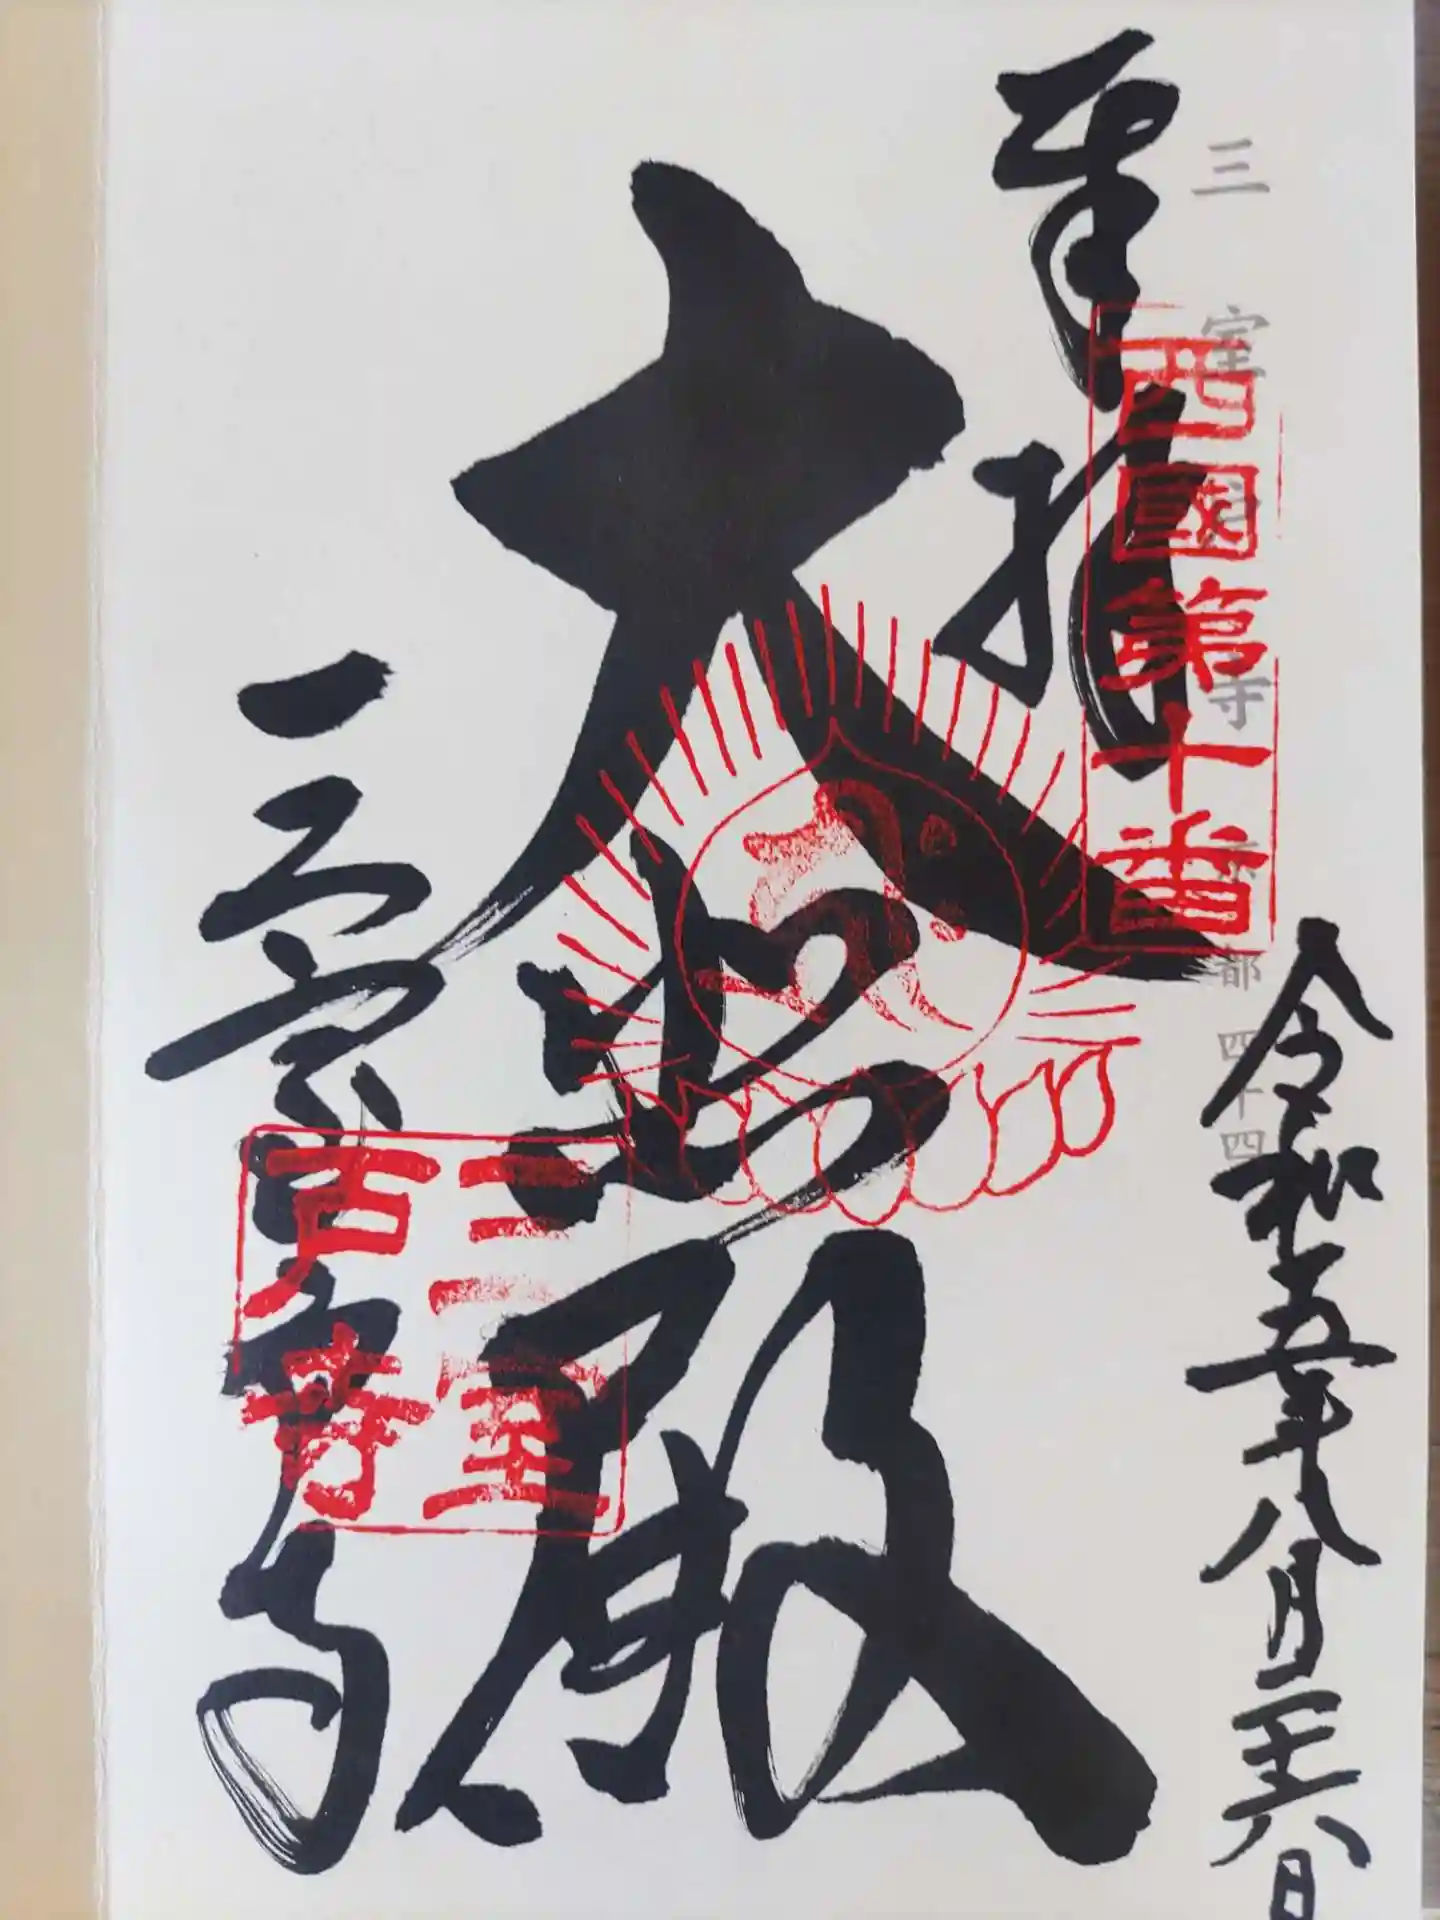 三室戸寺
京都四十四
奉拝
西國第十番
令和五年八月二十六日
大悲殿
三室戸寺
三室
戸寺